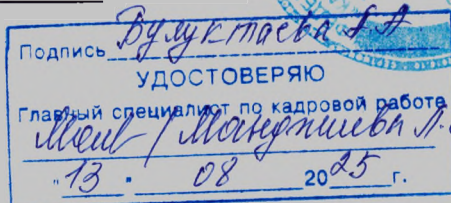 Подпись Булуктаева А А
УДОСТОВЕРЯЮ
Главный специалист по кадровой работе
/ Манджиева Л.
"13" 08 2025 г.